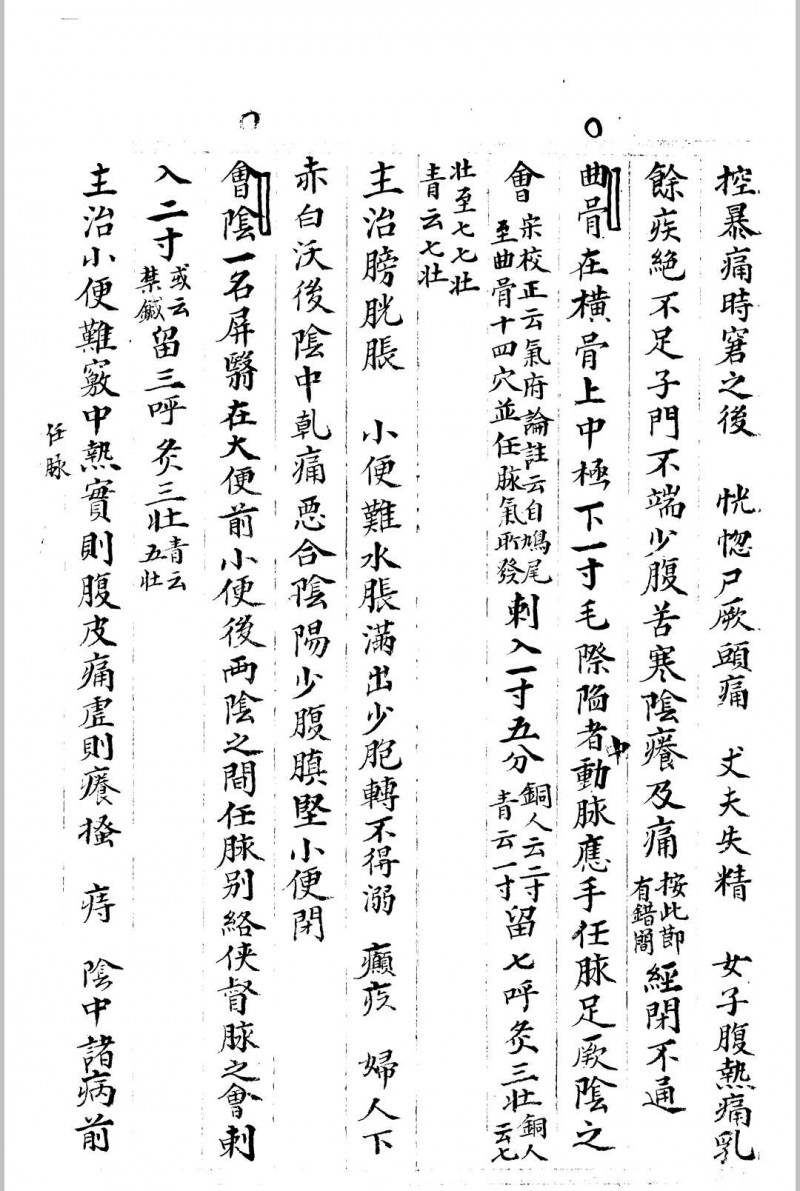 控暴痛時窘之後　恍惚尸厥頭痛　丈夫失精　女子腹熱痛乳
餘疾絶不足子門不端少腹苦寒陰癢及痛按此節有錯簡經閉不通
曲骨在橫骨上中極下一寸毛際陷者中動脉應手任脉足厥陰之
會宋校正云氣府論註云自鳩尾至曲骨十四穴並任脉氣所發刺入一寸五分銅人云二寸青云一寸留七呼灸三壯銅人云七
壯至七七壯青云七壯
主治膀胱脹　小便難水脹滿出少胞轉不得溺　㿗疝　婦人下
赤白沃後陰中乾痛惡合陰陽少腹䐜堅小便閉
會陰一名屏翳在大便前小便後兩陰之間任脉别絡俠督脉之會刺
入二寸或云禁鍼留三呼灸三壯青云五壯
主治小便難竅中熱實則腹皮痛虛則癢搔　痔　陰中諸病前
任脉